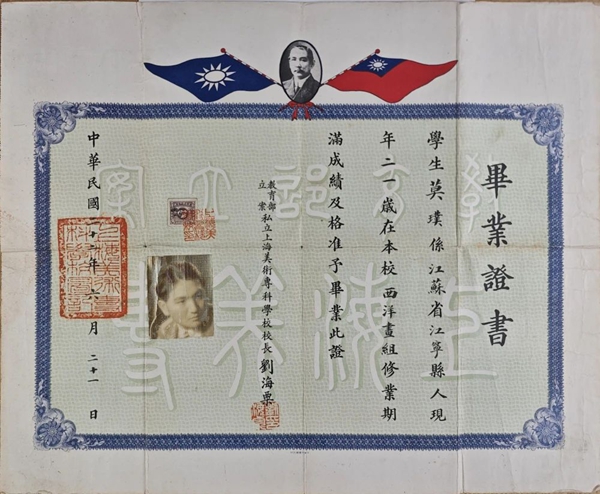 畢業證書
學生莫璞係江蘇省江寧縣人現
年二一歲在本校西洋畫組修業期
滿成績及格准予畢業此證
教育部立案
私立上海美術專科學校校長劉海粟
中華民國二十二年六月二十一日
教育部立案
上海美專